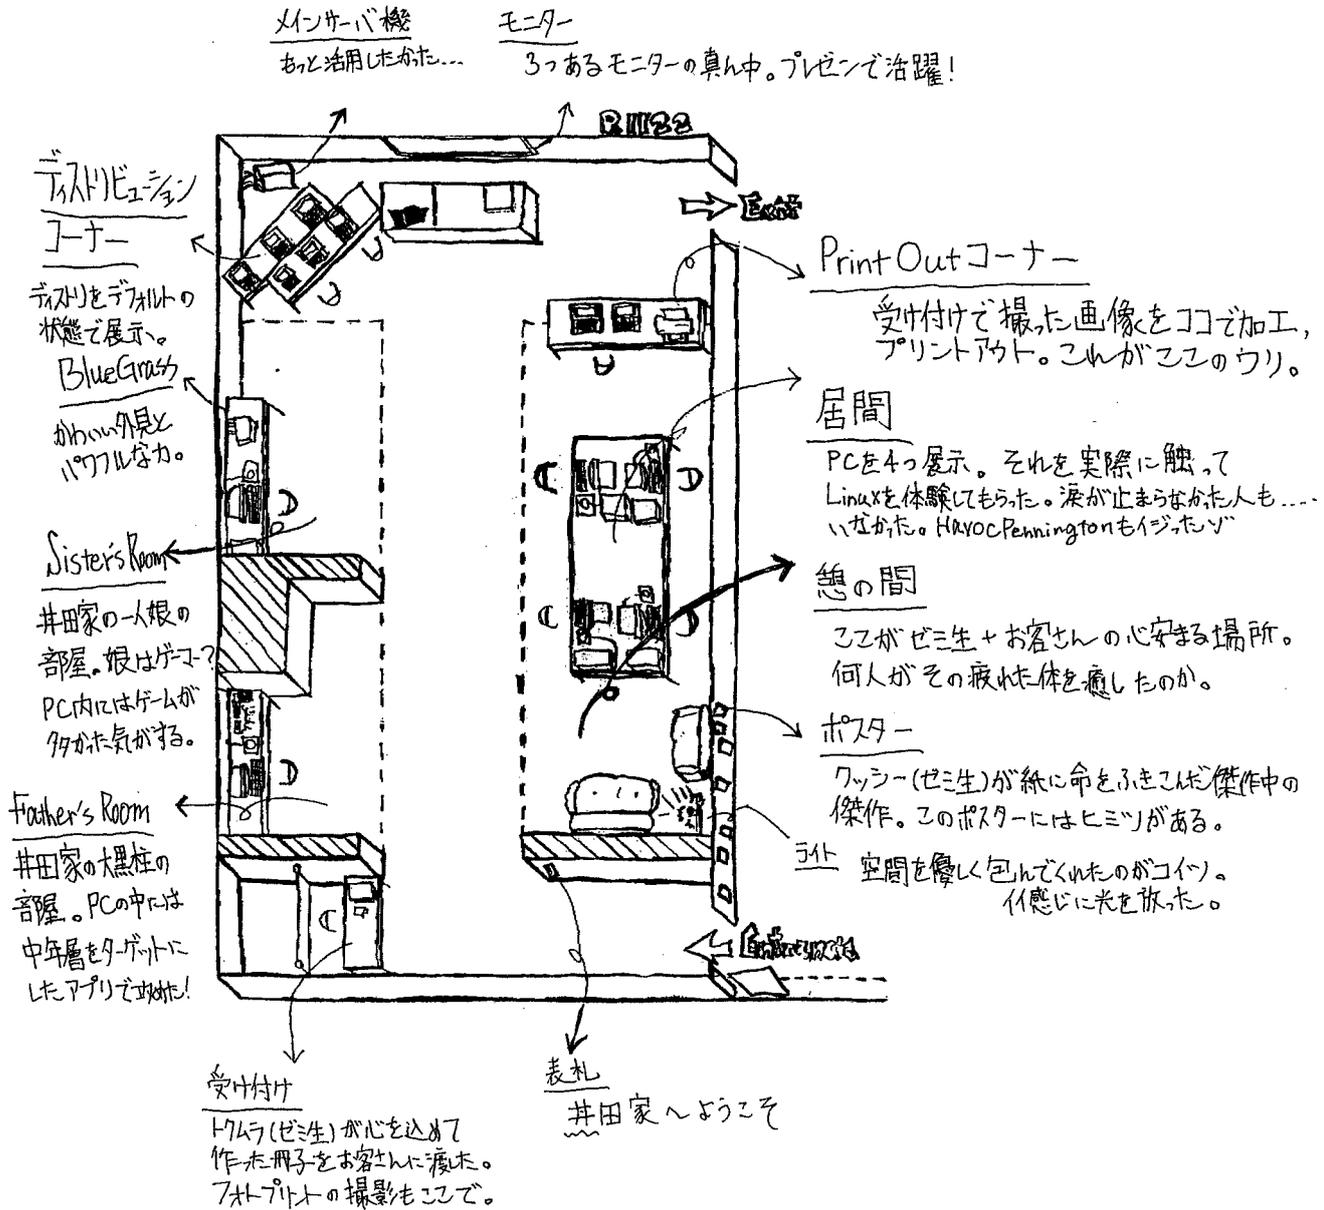 メインサーバ機
もっと活用したかった…
モニター
3つあるモニターの真ん中。プレゼンで活躍！
R1122
Exit
ディストリビューション
コーナー
ディストリをデフォルトの
状態で展示。
BlueGrass
かわいい外見と
パワフルなカ。
Sister's Room
井田家の一人娘の
部屋。娘はゲーマー?
PC内にはゲームが
多かった気がする。
Father's Room
井田家の大黒柱の
部屋。PCの中には
中年層をターゲットに
したアプリで攻めた!
PrintOutコーナー
受け付けで撮った画像をココで加工,
プリントアウト。これがここのウリ。
居間
PCを4つ展示。それを実際に触って
Linuxを体験してもらった。涙が止まらなかった人も……
いなかった。HavocPenningtonもイジったゾ
憩の間
ここがゼミ生+お客さんの心安まる場所。
何人がその疲れた体を癒したのか。
ポスター
クッシー(ゼミ生)が紙に命をふきこんだ傑作中の
傑作。このポスターにはヒミツがある。
ライト
空間を優しく包んでくれたのがコイツ。
イイ感じに光を放った。
Entrance
受け付け
トクムラ(ゼミ生)が心を込めて
作った冊子をお客さんに渡した。
フォトプリントの撮影もここで。
表札
井田家へようこそ